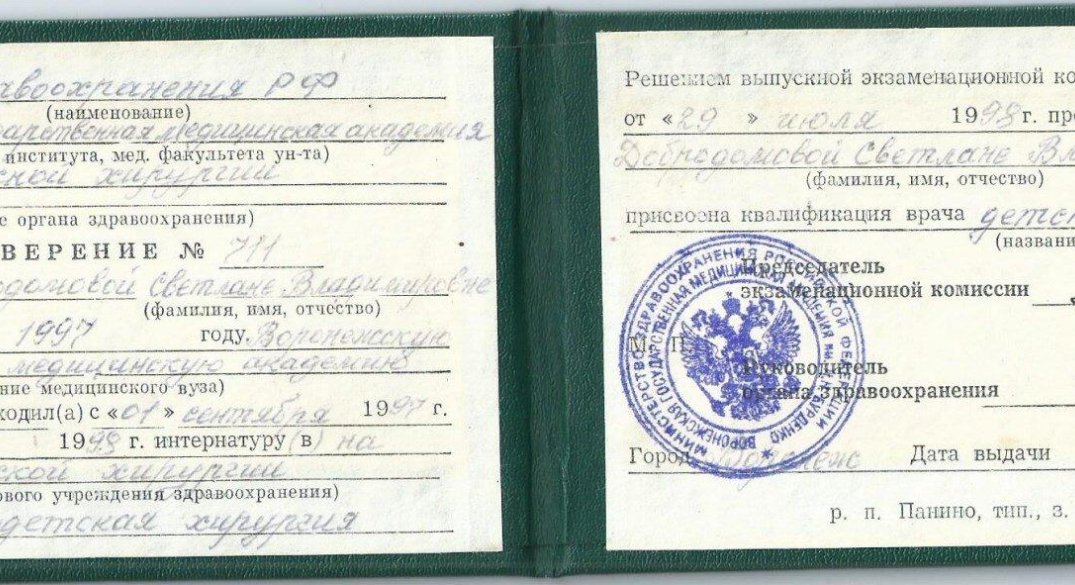 авоохранения РФ
(наименование)
дарственная медицинская академия
института, мед. факультета ун-та)
ской хирургии
е органа здравоохранения)
ВЕРЕНИЕ № 711
одомовой Светлане Владимировне
(фамилия, имя, отчество)
1997 году. Воронежскую
медицинскую академию
ние медицинского вуза)
ходил(а) с «01» сентября 1997 г.
1998 г. интернатуру в(о) на
ской хирургии
ового учреждения здравоохранения)
детская хирургия
Решением выпускной экзаменационной ко
от «29» июля 1998 г. пр
Добродомовой Светлане Вла
(фамилия, имя, отчество)
присвоена квалификация врача детск
(названи
Председатель
экзаменационной комиссии
М. П.
Руководитель
органа здравоохранения
Город Воронеж Дата выдачи
р. п. Панино, тип., з.
МИНИСТЕРСТВО ЗДРАВООХРАНЕНИЯ РОССИЙСКОЙ ФЕДЕРАЦИИ
ВОРОНЕЖСКАЯ ГОСУДАРСТВЕННАЯ МЕДИЦИНСКАЯ АКАДЕМИЯ им. Н.Н. БУРДЕНКО